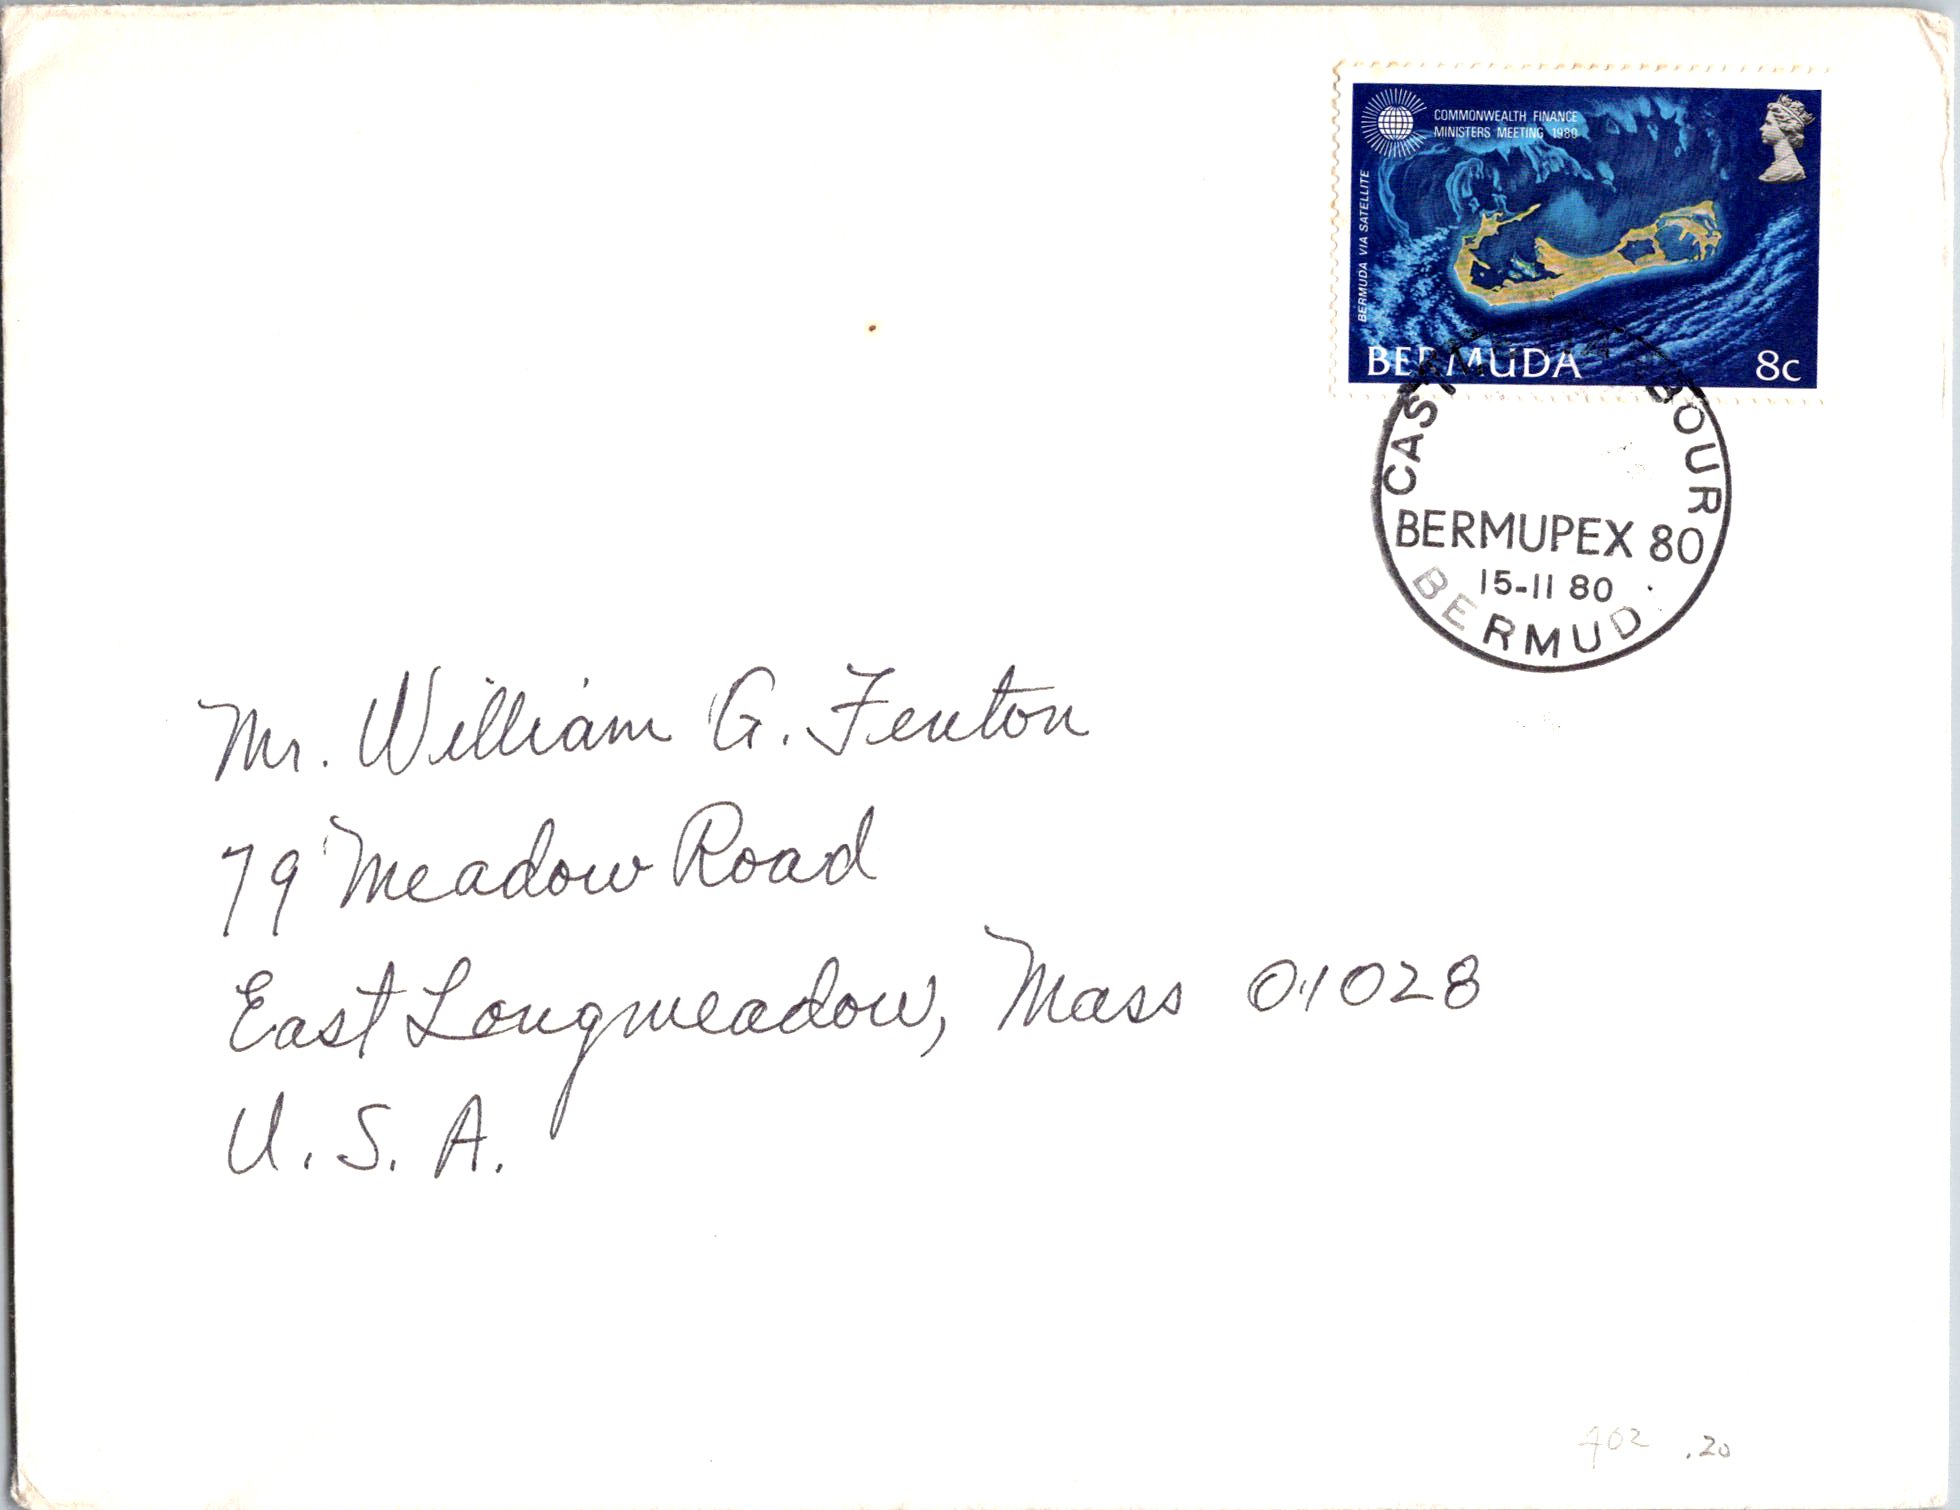 COMMONWEALTH FINANCE
MINISTERS MEETING 1980
BERMUDA VIA SATELLITE
BERMUDA 8c
BERMUPEX 80
15-11 80
BERMUD
Mr. William G. Fenton
79 Meadow Road
East Longmeadow, Mass 01028
U. S. A.
402 .20